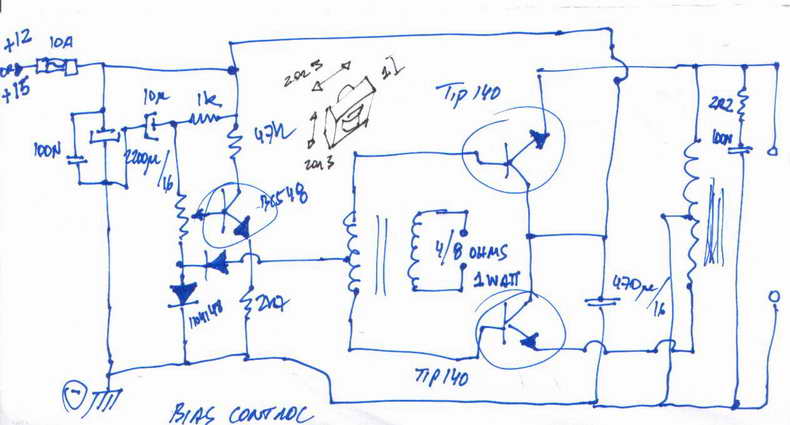 +12
10A
+15
100N
2200µ/16
10µ
1k
47Ω
BC548
1N4148
2k7
BIAS CONTROL
4/8 OHMS
1 WATT
TIP 140
TIP 140
470µ/16
2R2
100N
(-)